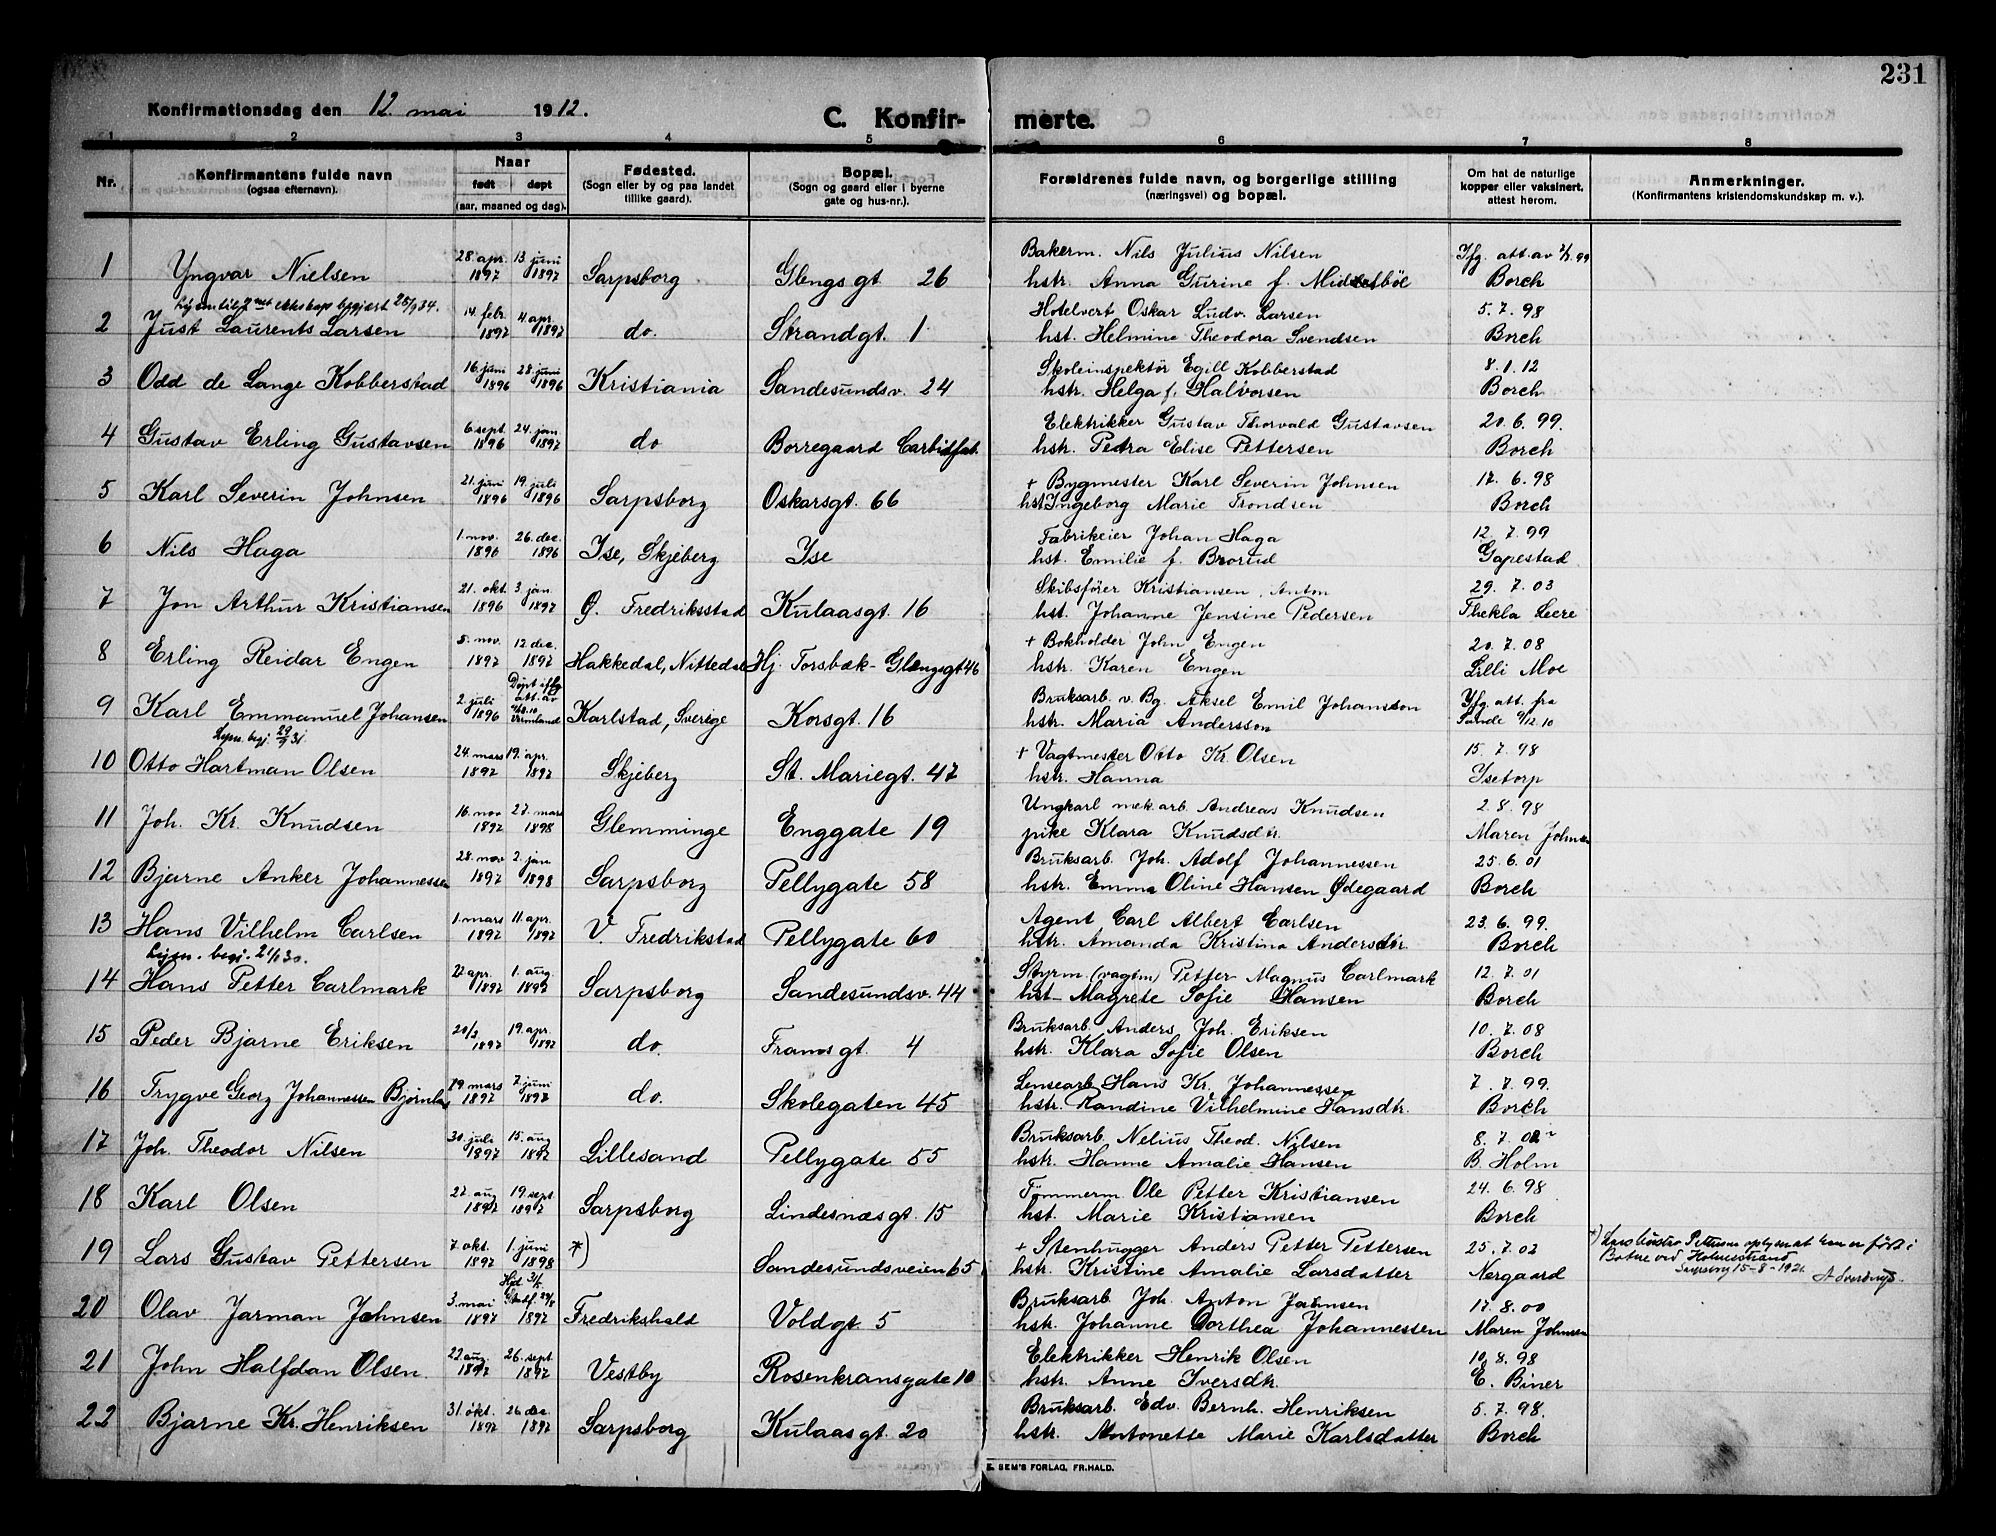 231
Konfirmationsdag den 12. mai 1912.
C. Konfirmerte.
1 2 3 4 5 6 7 8
Nr.
Konfirmantens fulde navn
(ogsaa efternavn).
Naar
født døpt
(aar, maaned og dag).
Fødested.
(Sogn eller by og paa landet
tillike gaard).
Bopæl.
(Sogn og gaard eller i byerne
gate og hus-nr.).
Forældrenes fulde navn, og borgerlige stilling
(næringsvei) og bopæl.
Om hat de naturlige
kopper eller vaksinert,
attest herom.
Anmerkninger.
(Konfirmantens kristendomskundskap m. v.).
28. apr. 13. juni Bakerm. Nils Julius Nilsen Ifg. att. av 99
1 Yngvar Nielsen 1897 1897 Sarpsborg Glengsgt 26 hstr. Anna Gurine f. Middelböl Borch
ekteskap begjært 25/9 34.
14. febr. 4. apr. Hotelvert Oskar Ludv. Larsen 5.7.98
2 Just Laurents Larsen 1897 1897 do. Strandgt. 1 hst. Helmine Theodora Svendsen Borch
16. juni 28. juni Skoleinspektör Egill Kobberstad 8.1.12
3 Odd de Lange Kobberstad 1896 1896 Kristiania Sandesundsv. 24 hstr. Helga f. Halvorsen Borch
6. sept. 24. jan. Elektrikker Gustav Thorvald Gustavsen 20.6.99.
4 Gustav Erling Gustavsen 1896 1897 do Borregaard Carbidfab. hstr. Petra Elise Pettersen Borch
21. juni 19. juli + Bygmester Karl Severin Johnsen 17.6.98
5 Karl Severin Johnsen 1896 1896 Sarpsborg Oskarsgt. 66 hst Ingeborg Marie Trondsen Borch
1. nov. 26. dec. Fabrikeier Johan Haga 12.7.99
6 Nils Haga 1896 1896 Ise, Skjeberg Ise hst. Emilie f. Brorud Gapestad
21. okt. 3. jan Skibsförer Kristiansen, Anton 29.7.03
7 Jon Arthur Kristiansen 1896 1897 Ø. Fredriksstad Kulaasgt 16 hst. Johanne Jensine Pedersen Thekla Leere
5. nov. 12. dec. + Bokholder John Engen 20.7.08
8 Erling Reidar Engen 1897 1897 Hakkedal, Nittedal Hj. Torsbæk - Glengsgt 46 hstr. Karen Engen Lilli Moe
Døpt iflg
att. av
2. juli Bruksarb. v. Bg. Aksel Emil Johansson Ifg. att. fra
9 Karl Emmanuel Johansen 1896 Vermland Karlstad, Sverige Korsgt. 16 hstr. Maria Andersson Sunde 9/12.10
Lysn. begj. 31.
24. mars 19. apr. + Vagtmester Otto Kr. Olsen 15.7.98
10 Otto Hartman Olsen 1897 1897 Skjeberg St. Mariegt. 47 hstr. Hanna Isetorp
16. nov 27. mars Ungkarl mek. arb. Andreas Knudsen 2.8.98
11 Joh. Kr. Knudsen 1897 1898 Glemminge Enggate 19 pike Klara Knudsdtr. Maren Johnsen
28. nov 2. jan Bruksarb. Joh. Adolf Johannessen 25.6.01
12 Bjarne Anker Johannessen 1897 1898 Sarpsborg Pellygate 58 hstr. Emma Oline Hansen Ødegaard Borch
1. mars 11. apr. Agent Carl Albert Carlsen 23.6.99.
13 Hans Vilhelm Carlsen 1897 1897 V. Fredrikstad Pellygate 60 hstr. Amanda Kristina Andersdtr. Borch
Lysn. begj. 21/1 30.
22 apr. 1. aug. Styrm. (vagtm) Petter Magnus Carlmark 12.7.01
14 Hans Petter Carlmark 1897 1897 Sarpsborg Sandesundsv. 44 hst. Magrete Sofie Hansen Borch
20/3 19. apr. Bruksarb. Anders Joh. Eriksen 10.7.08
15 Peder Bjarne Eriksen 1897 1897 do. Framsgt. 4 hstr. Klara Sofie Olsen Borch
29 mars 7. juni Lensearb Hans Kr. Johannessen 7.7.99.
16 Trygve Georg Johannessen 1897 1897 do. Skolegaten 45 hstr. Randine Vilhelmine Hansdtr. Borch
30. juli 15. aug Bruksarb. Nelius Theod. Nilsen 8.7.02
17 Joh. Theodor Nilsen 1897 1897 Lillesand Pellygate 55 hstr. Hanne Amalie Hansen B. Holm
27. aug 19. sept. Tömmerm. Ole Petter Kristiansen 24.6.98
18 Karl Olsen 1897 1897 Sarpsborg Lindesnæsgt. 15 hst. Marie Kristiansen Borch
7. okt. 1. juni + Stenhugger Anders Petter Pettersen 25.7.02
19 Lars Gustav Pettersen 1897 1898 *) Sandesundsveien 65 hstr. Kristine Amalie Larsdatter Nergaard
*) Pettersen oplyser at han er født i
Botne ved Holmestrand
Sarpsborg 15-8-1921.
Hjd.
Stadf. 29/8
3. mai Bruksarb. Joh. Anton Johnsen 17.8.00
20 Olav Jarman Johnsen 1897 1897 Fredrikshald Voldgt. 5 hstr. Johanne Dorthea Johannessen Maren Johnsen
22. aug. 26. sept. Elektrikker Henrik Olsen 10.8.98
21 John Halfdan Olsen. 1897 1897 Vestby Rosenkransgate 10 hstr. Anne Iversdtr. E. Biner
31. okt. 26 dec. Bruksarb. Edv. Bernh. Henriksen 5.7.98.
22 Bjarne Kr. Henriksen 1897 1897 Sarpsborg Kulaasgt. 20 hstr. Antonette Marie Karlsdatter Borch
E. SEM'S FORLAG, FR.HALD.